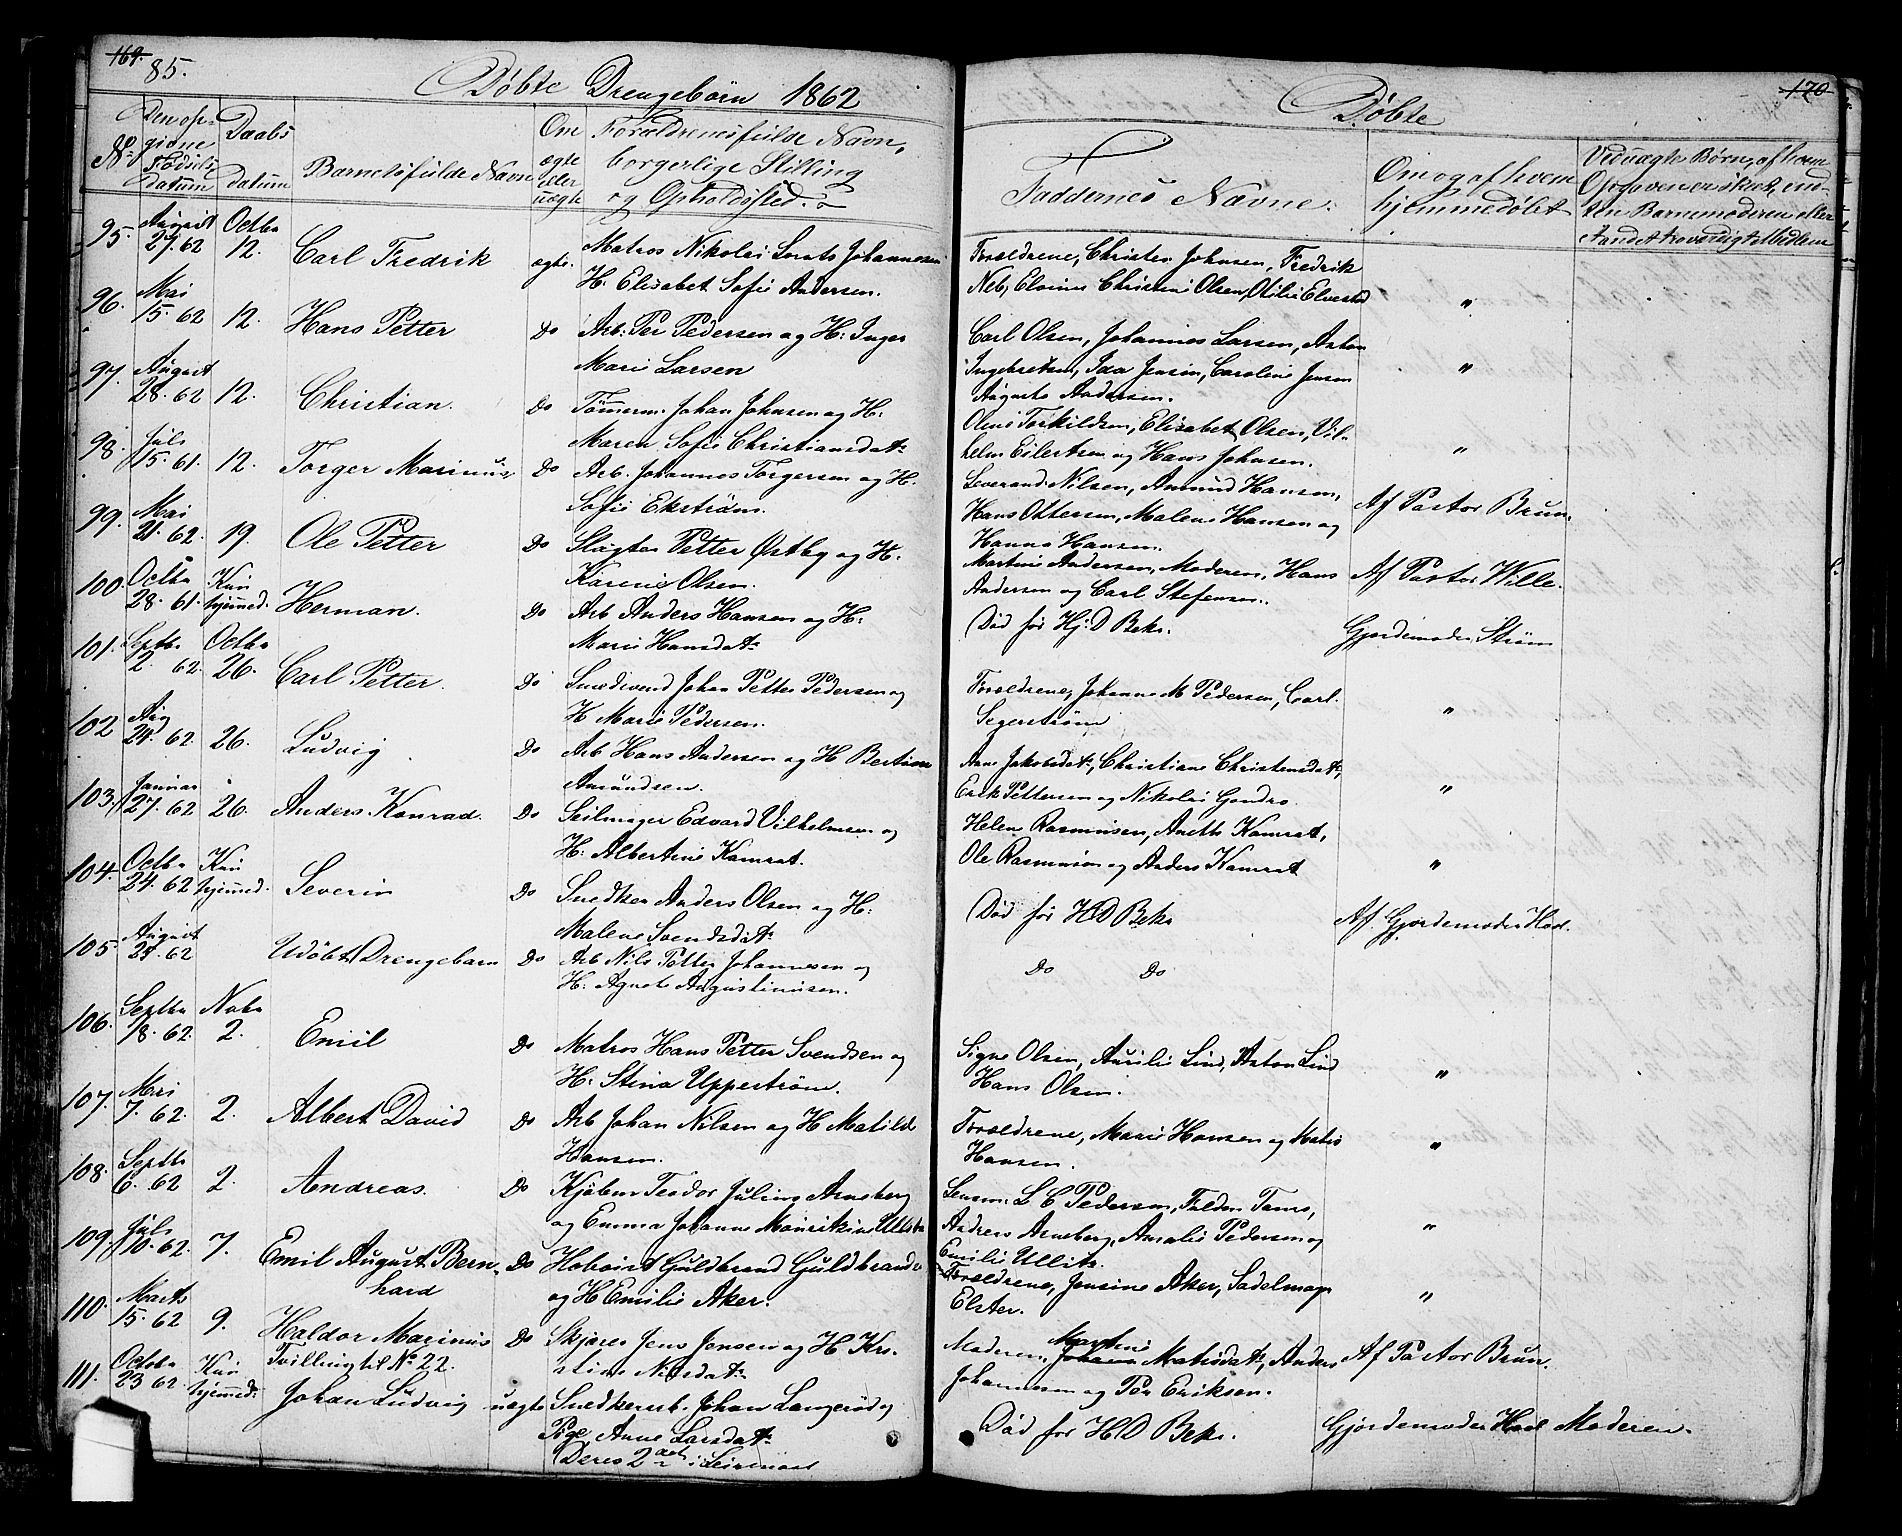 169.
85.
Døbte Drengebørn 1862
No
Den op-
givne
Fødsels
datum
Daabs
datum
Barnets fulde Navn
Om
ægte
eller
uægte
Forældrenes fulde Navn,
borgerlige Stilling
og Opholdssted.
95. August 27. 62 Octbr 12. Carl Fredrik ægte. Matros Nikolai Johannesen
H. Elisabet Sofie Andersen.
96. Mai 15. 62 12. Hans Petter Do Arb: Per Pedersen og H: Inger
Marie Larsen
97. August 28. 62 12. Christian. Do Tømmerm. Johan Johnsen og H:
Maren Sofie Christiansdatr
98. Juli 15. 61. 12. Torger Marinus Do Arb. Johannes Torgersen og H.
Sofie Ekstrøm.
99. Mai 21. 62. 19. Ole Petter Do Slagter Petter Østby og H.
Karenie Olsen.
100. Octbr 28. 61. Kun hjemmed. Herman. Do Arb Anders Hansen og H:
Marie Hansdatr
101. Septbr 2 62. Octbr 26. Carl Petter. Do Smedsvend Johan Petter Pedersen og
H Marie Pedersen.
102 Aug 24. 62 26. Ludvig Do Arb Hans Andersen og H Bertine
Amundsen.
103. Januar 27. 62 26. Anders Konrad. Do Seilmager Edvard Vilhelmsen og
H: Albertine Kamrat.
104. Octbr 24. 62 Kun hjemmed. Severin Do Snedker Anders Olsen og H:
Malene Svendsdatr
105 August 28. 62 Udøbt Drengebarn Do Arb Nils Petter Johannesen og
H: Agnete Augustinusen.
106. Septbr 18. 62 Novbr 2. Emil Do Matros Hans Petter Svendsen og
H: Stina Uppestrøm.
107. Mai 7. 62 2. Albert David Do Arb Johan Nilsen og H Matild
Hansen.
108. Septbr 6. 62 2. Andreas. Do Kjøbm Teodor Juling Arneberg
og Emma Johanne
109. Juli 10. 62. 7. Emil August Bern-
hard Do Guldbrand Guldbrands
og H Emilie Aker.
110. Marts 15. 62 9. Haldor Marinus
Tvilling til No 22. Do Skjærer Jens Jensen og H Kri-
stine Nilsdatr
111. Octobr 23 62. Kun hjemmed. Johan Ludvig uægte Snedkersv. Johan Langerød og
Pige Anne Larsdatr
Deres 2det i Leiermaal
170
Døbte
Faddernes Navne.
Om og af hvem
hjemmedøbt
Ved uægte Børn, af hvem
Opgaven er skeet, en-
ten Barnemoderen eller
andet troværdigt Middel
Forældrene, Christen Johnsen, Fredrik
Neb, Christine Olsen, Otilie Elvestad "
Carl Olsen, Johannes Larsen, Anton
Ingebretsen, Ida Jensen, Caroline Jensen "
Auguste Andersen.
Oline Torkildsen, Elisabet Olsen, Vil-
helm Eilertsen og Hans Johnsen. "
Severand Nilsen, Amund Hansen,
Hans Ottersen, Malene Hansen og Af Pastor Brun.
Hanna Hansen.
Martine Andersen, Moderen, Hans Af Pastor Wille.
Andersen og Carl Stefensen.
Død før Hj: D Bekr. Gjordemoder Strøm
Forældrene, Johanne M Pedersen, Carl.
Segerstrøm "
Ane Jakobsdatr, Christiane Christensdatr,
Erik Pettersen og Nikolai Gondro. "
Helen Rasmussen, Anethe Kamrat,
Ole Rasmussen og Anders Kamrat "
Død før H D Bekr Af Gjordemoder Hoel.
Do Do
Signe Olsen, Aurilie Lind, Anton Lind
Hans Olsen. "
Forældrene, Marie Hansen og
Hansen. "
L C Pedersen,
Andreas Arneberg, Amalie Pedersen og "
Emilie Ullitz.
Forældrene, Jensine Aker, Sadelmager
Elster. "
Moderen, Martine Matisdatr, Anders Af Pastor Brun.
Johannesen og Per Eriksen.
Død før H D Bekr. Gjordemoder Hoel Moderen.